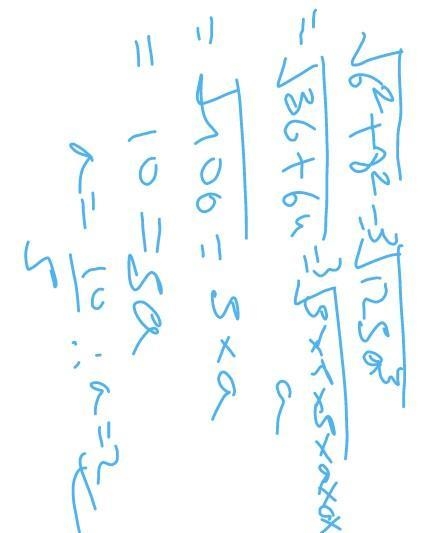 √6²+8² = ³√125a³
= √36+64 = ³√5×5×5×a×a×
a
= √100 = 5×a
= 10 = 5a
a = 10/5 ∴ a = 2